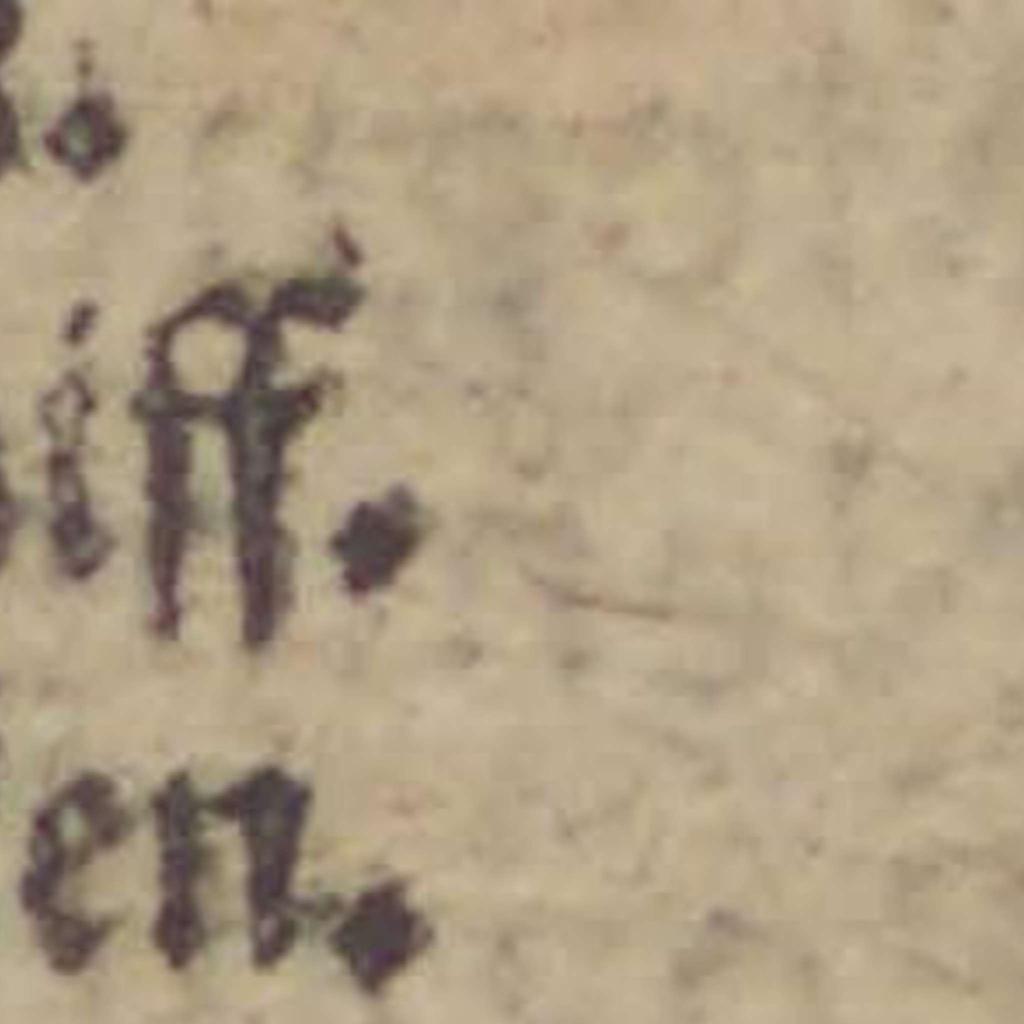 .
iff.
en.